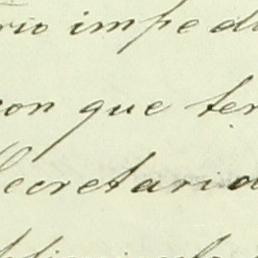 rio impedi
con que ter
Secretaria